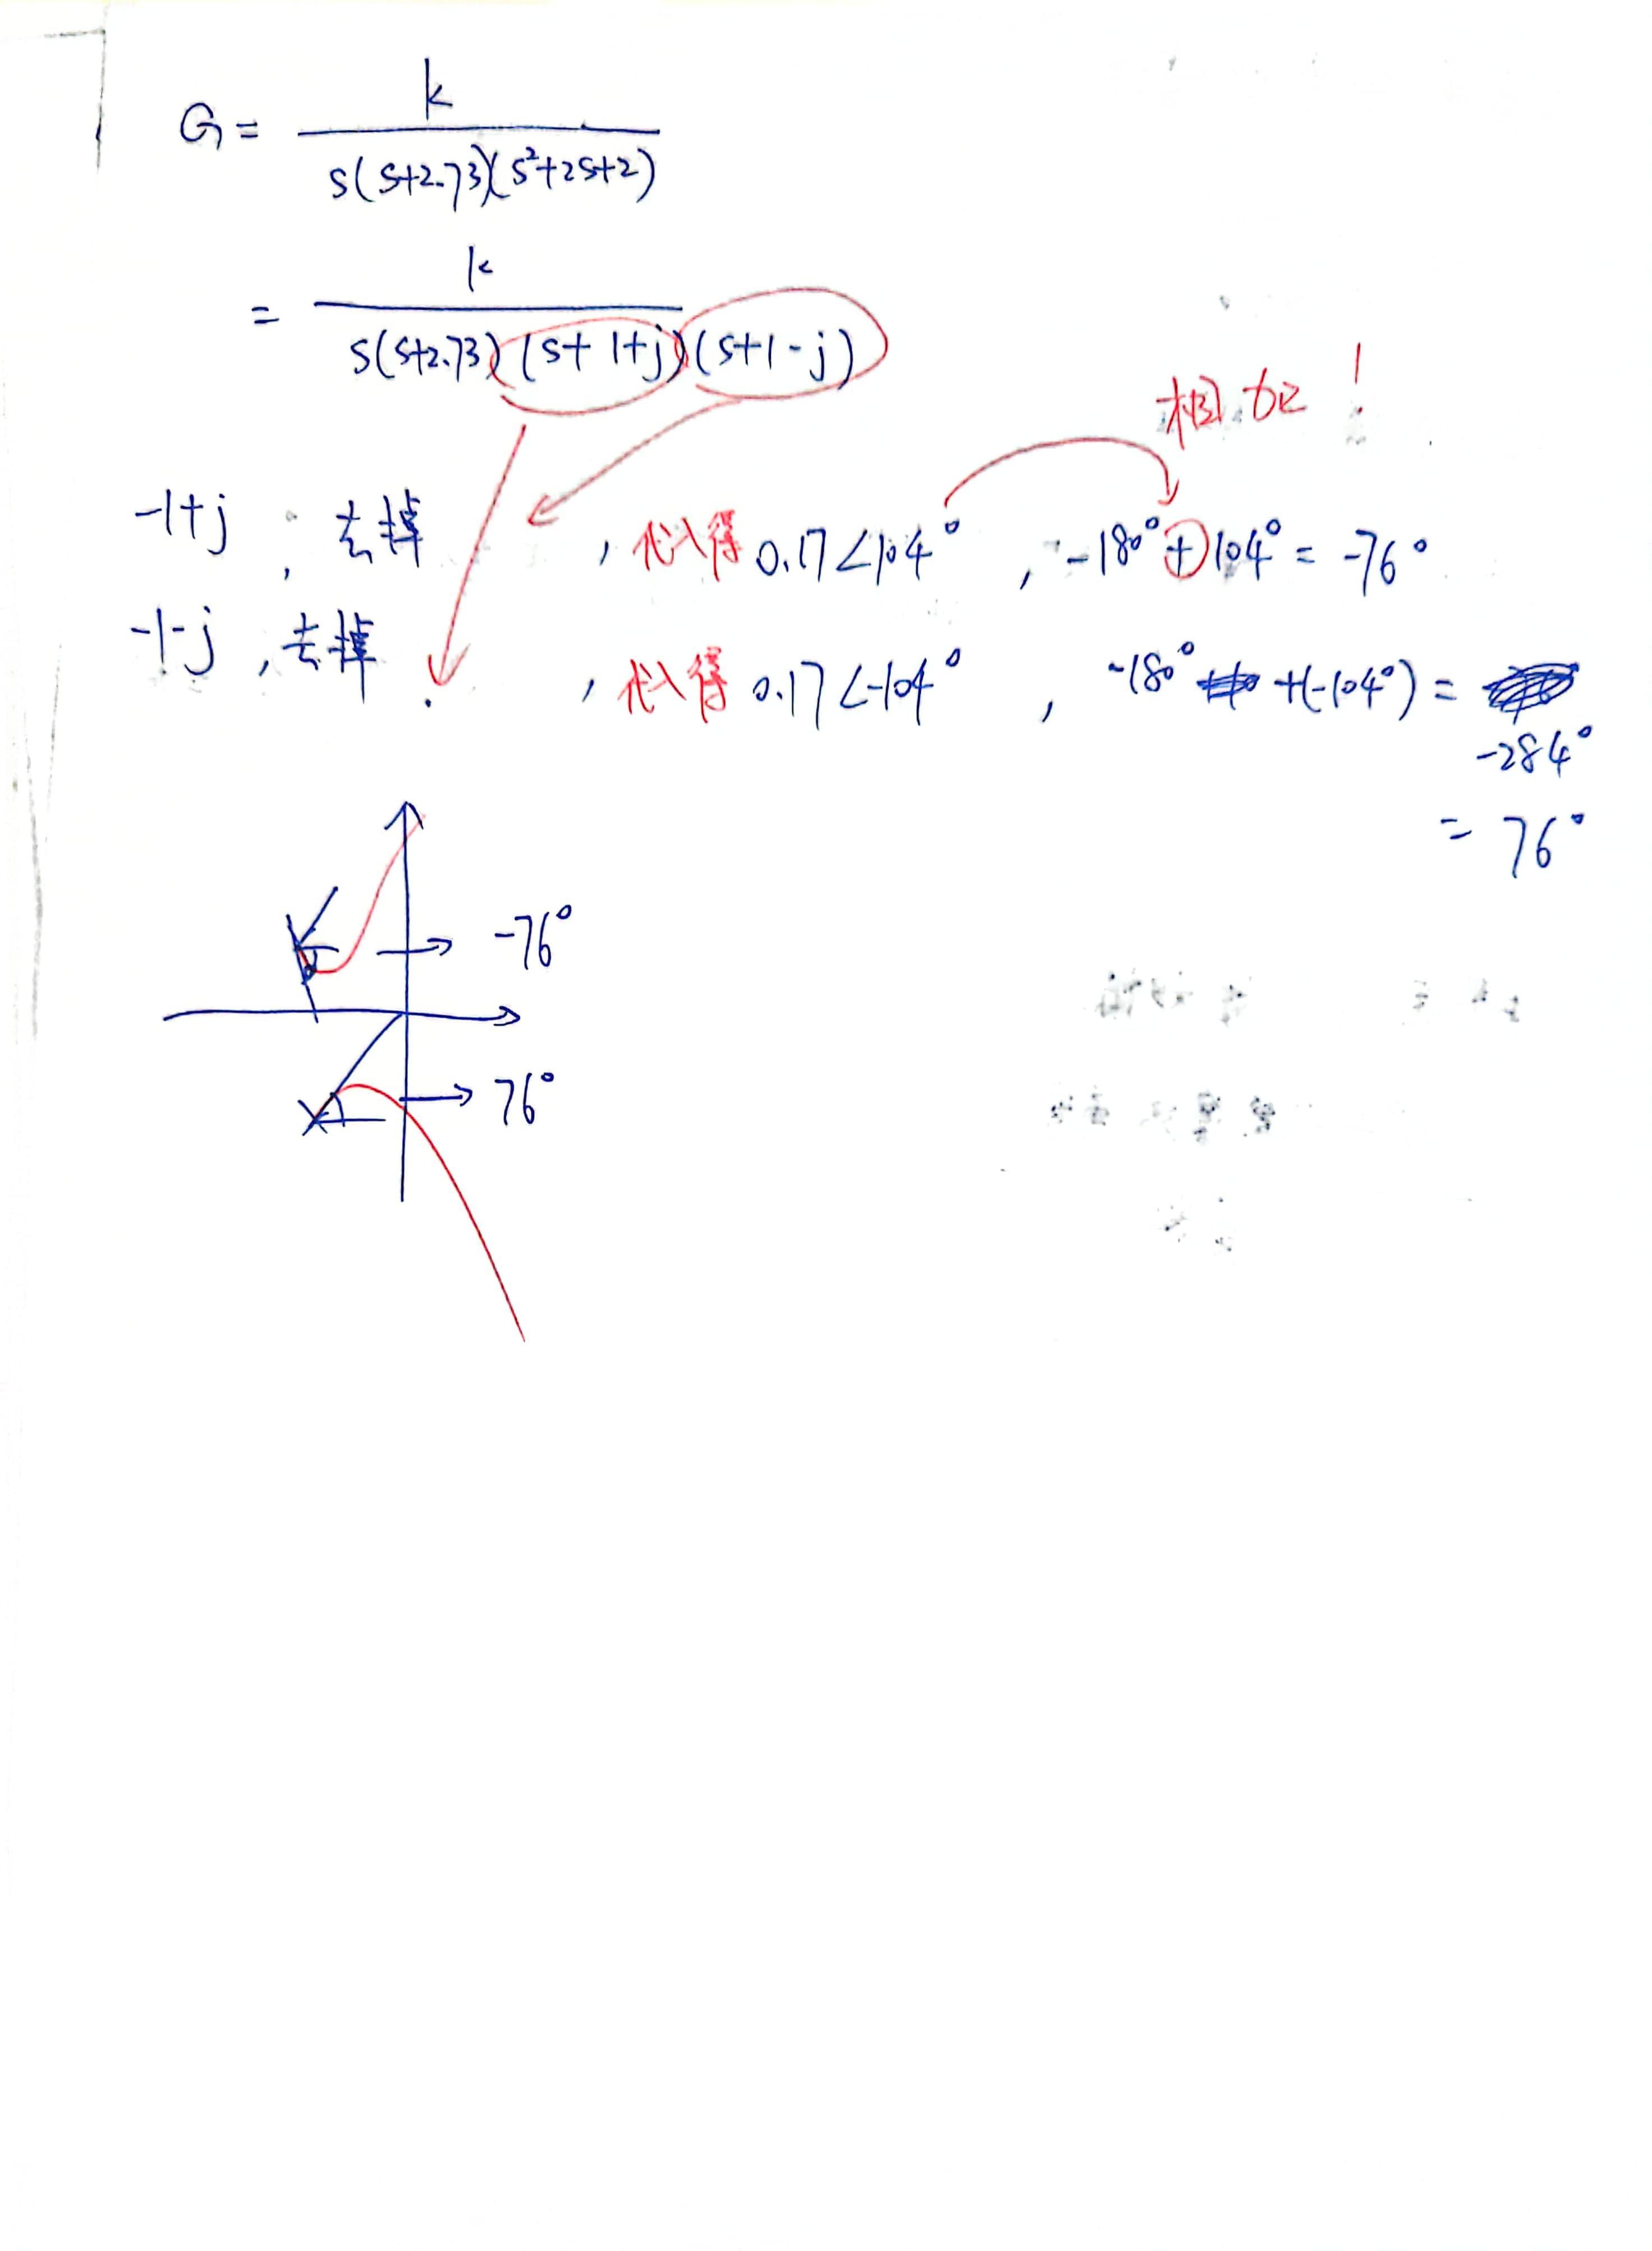 G = k / s(s+2.73)(s²+2s+2)
= k / s(s+2.73)(s+1+j)(s+1-j)
相加!
-1+j , 去掉 , 代入得 0.17∠104° , -180°+104° = -76°
-1-j , 去掉 , 代入得 0.17∠-104° , -180° +(-104°) =
-284°
= 76°
-76°
76°